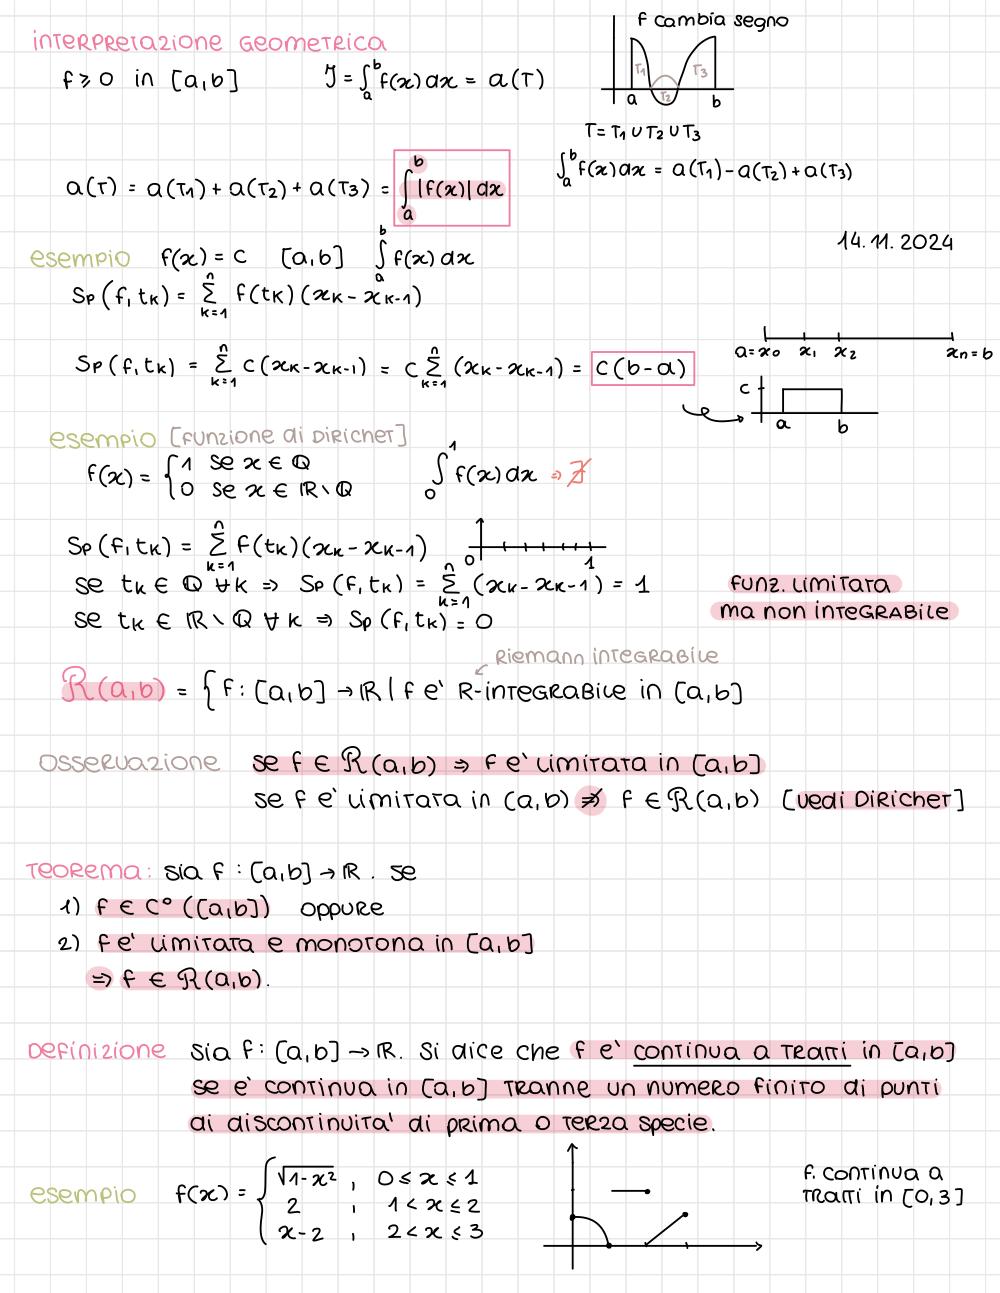 interpretazione geometrica
f ≥ 0 in [a,b] J = ∫_a^b f(x) dx = a(T)
f cambia segno
T₁ T₂ T₃
a b
T = T₁ ∪ T₂ ∪ T₃
∫_a^b f(x) dx = a(T₁) - a(T₂) + a(T₃)
a(T) = a(T₁) + a(T₂) + a(T₃) = ∫_a^b |f(x)| dx
14.11.2024
esempio f(x) = c [a,b] ∫_a^b f(x) dx
Sp(f, tk) = Σ_{k=1}^n f(tk)(xk - xk-1)
Sp(f, tk) = Σ_{k=1}^n c(xk - xk-1) = c Σ_{k=1}^n (xk - xk-1) = c(b-a)
a=x₀ x₁ x₂ xn=b
c
a b
esempio [funzione di Dirichet]
f(x) = { 1 se x ∈ ℚ
0 se x ∈ ℝ∖ℚ
∫_0^1 f(x) dx ⇒ ∄
Sp(f, tk) = Σ_{k=1}^n f(tk)(xk - xk-1)
0 1
se tk ∈ ℚ ∀k ⇒ Sp(f, tk) = Σ_{k=1}^n (xk - xk-1) = 1
se tk ∈ ℝ∖ℚ ∀k ⇒ Sp(f, tk) = 0
funz. limitata
ma non integrabile
Riemann integrabile
ℛ(a,b) = { f: [a,b] → ℝ | f e' R-integrabile in [a,b]
Osservazione se f ∈ ℛ(a,b) ⇒ f e' limitata in [a,b]
se f e' limitata in (a,b) ⇏ f ∈ ℛ(a,b) [vedi Dirichet]
Teorema: sia f: [a,b] → ℝ. se
1) f ∈ C° ([a,b]) oppure
2) f e' limitata e monotona in [a,b]
⇒ f ∈ ℛ(a,b).
Definizione sia f: [a,b] → ℝ. Si dice che f e' continua a tratti in [a,b]
se e' continua in [a,b] tranne un numero finito di punti
di discontinuita' di prima o terza specie.
esempio f(x) = { √(1-x²) , 0 ≤ x ≤ 1
2 , 1 < x ≤ 2
x-2 , 2 < x ≤ 3
f. continua a
tratti in [0,3]